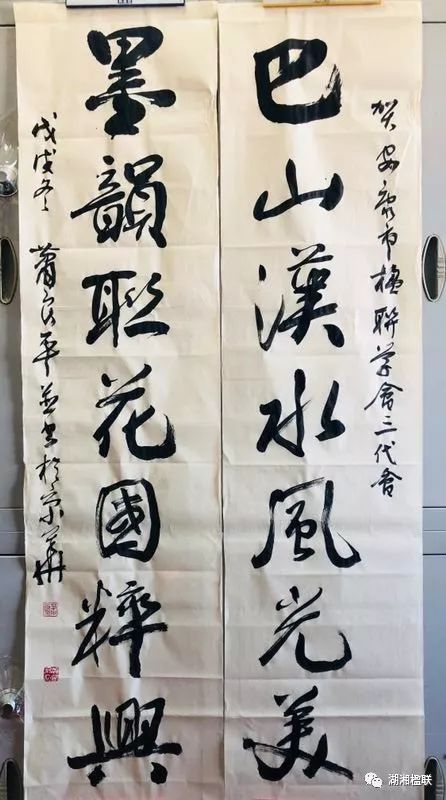 賀安康市楹聯学會三代會
巴山漢水風光美
墨韻聯花國粹興
戊戌冬 蕭良平並書於
湖湘楹联